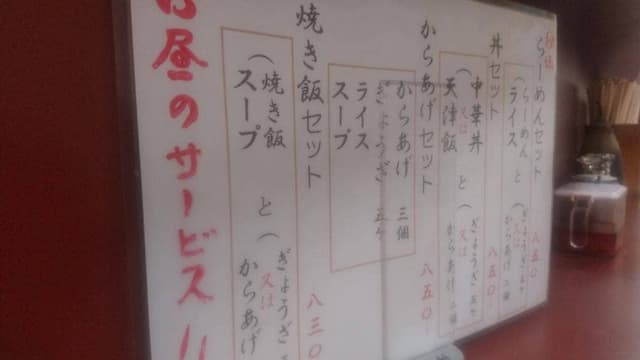 らーめんセット 八五〇
(らーめん と (ぎょうざ五ケ
ライス 又は
からあげ二個
丼セット 八五〇
(中華丼 と (ぎょうざ五ケ
又は 又は
天津飯 からあげ二個
からあげセット 八五〇
からあげ 三個
ぎょうざ 五ケ
ライス
スープ
焼き飯セット 八三〇
(焼き飯 と (ぎょうざ
スープ 又は
からあげ
昼のサービス